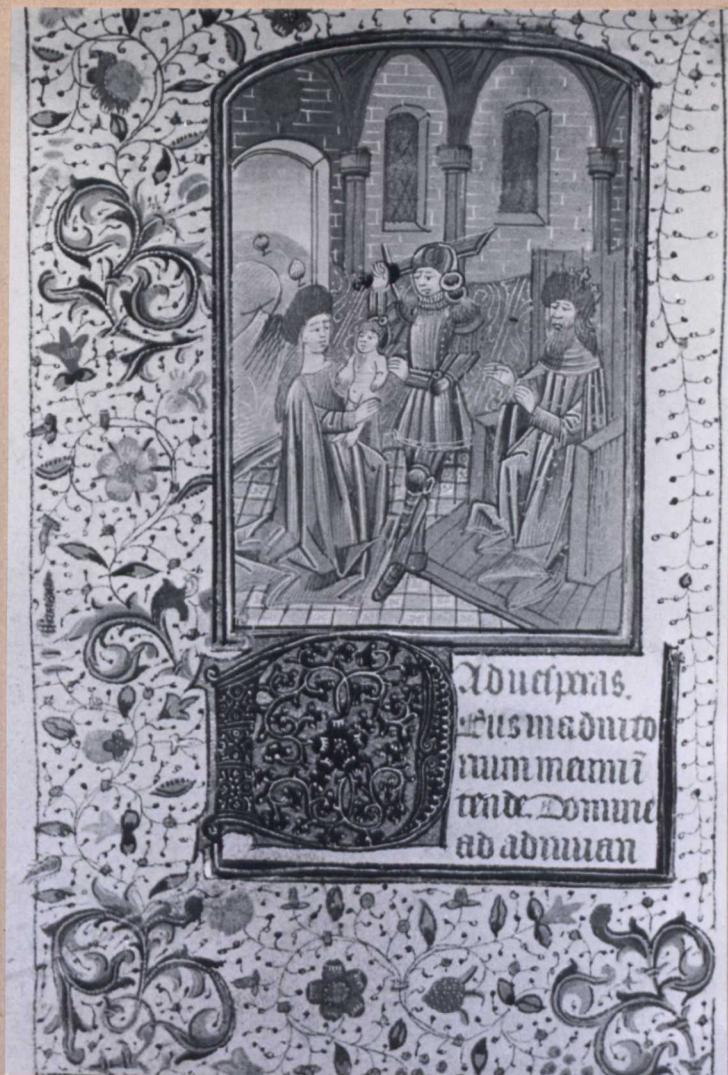 Ad uesperas.
Eus in adiuto
rium meum ī
tende. Domine
ad adiuuan